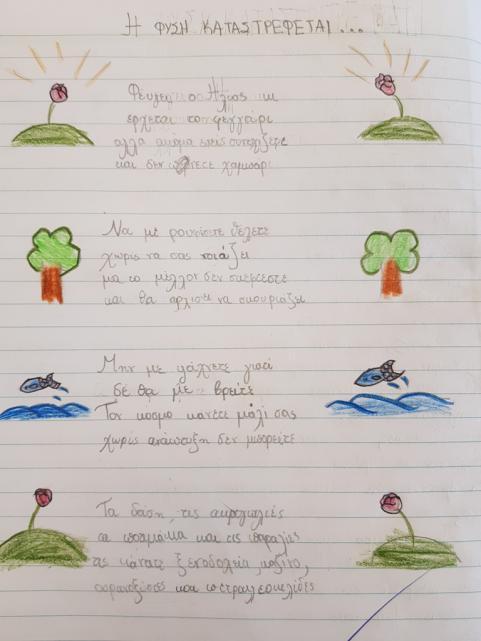 Η ΦΥΣΗ ΚΑΤΑΣΤΡΕΦΕΤΑΙ...
Φεύγει ο Ήλιος κι
έρχεται το φεγγάρι
αλλά ακόμα εσείς συνεχίζετε
και δεν χαμπάρι
Να με ρουφίσετε θέλετε
χωρίς να σας νοιάζει
μα το μέλλον δεν σκέφτεστε
και θα αρχίσει να σκουριάζει
Μην με ψάχνετε γιατί
δε θα με βρείτε
Τον κόσμο κάνετε μαζί σας
χωρίς ανάπτυξη δεν μπορείτε
Τα δάση, τις ακρογιαλιές
τα ποτάμια και τις παραλίες
τις κάνατε ξενοδοχεία, καζίνο,
ουρανοξύστες και